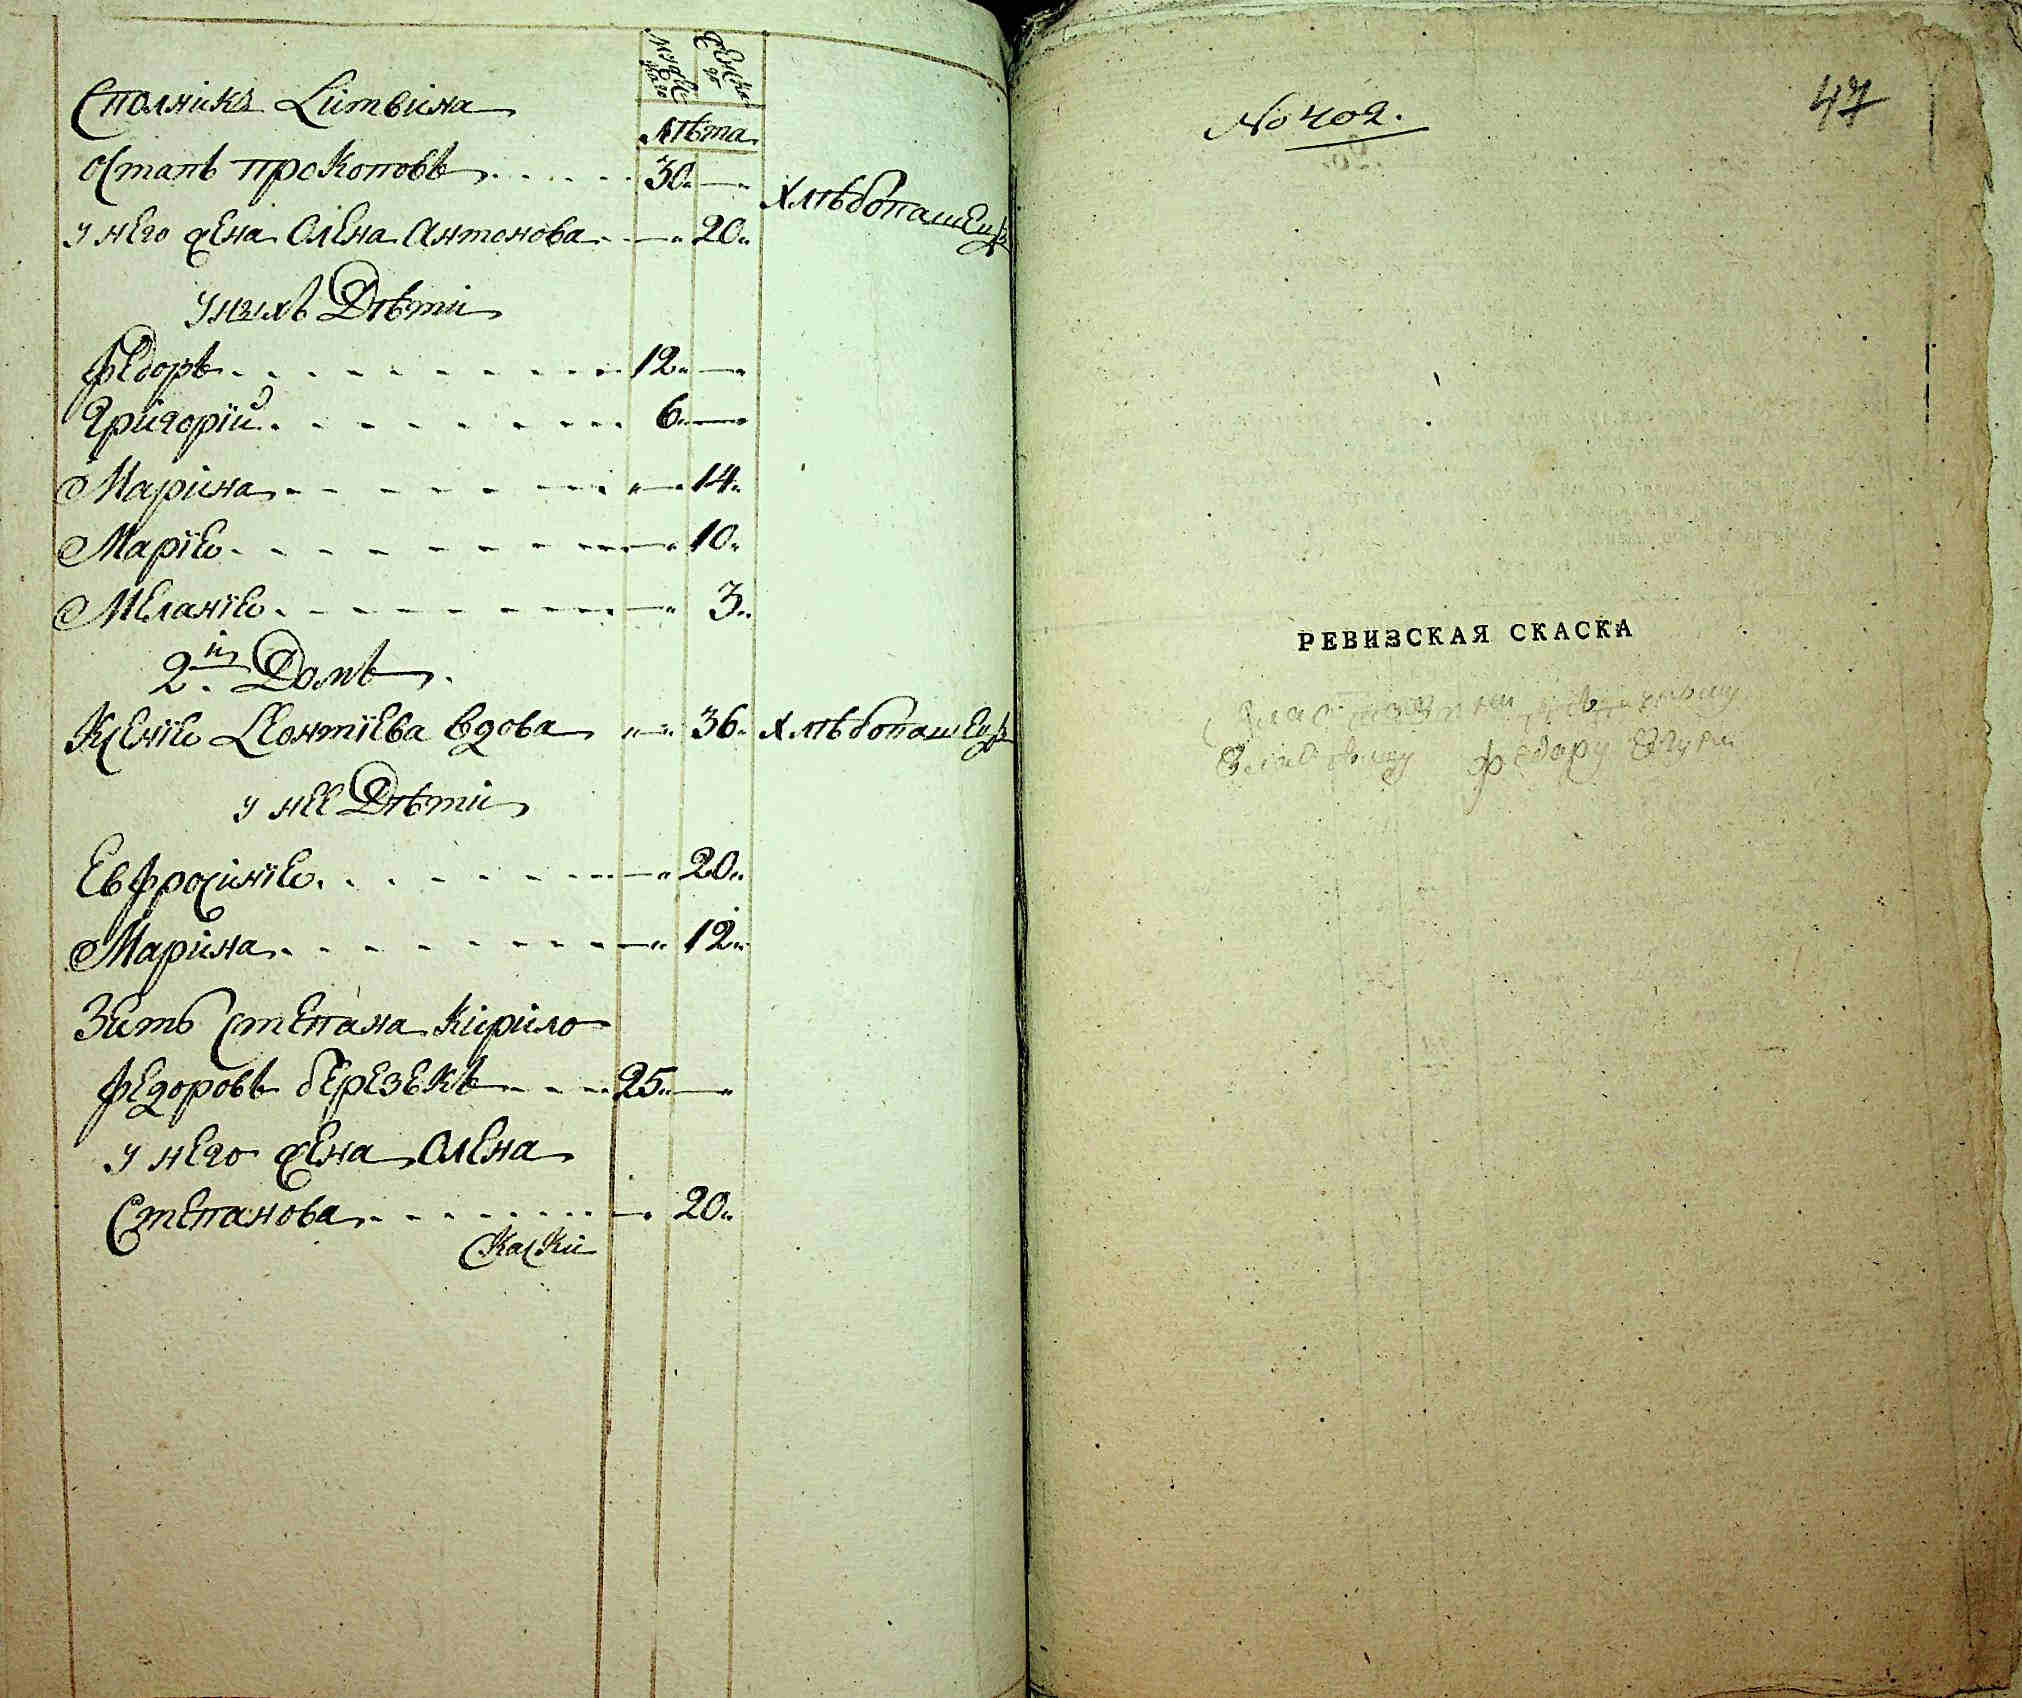 мужеска
женска
лѣта
Сполника Литвина
Остапъ Прокоповъ 30
у него жена Олена Антонова 20 Хлѣбопашецъ
у ныхъ Дѣти
Федоръ 12
Григорій 6
Марина 14
Марія 10
Меланія 3
2й Домъ
Ксенія Леонтіева вдова 36 Хлѣбопашецъ
у нее Дѣти
Евфросинія 20
Марина 12
Зять Степана Кирило
Федоровъ Березекъ 25
у него жена Олена
Степанова 20
Скаски
No 402.
47
РЕВИЗСКАЯ СКАСКА
Федору